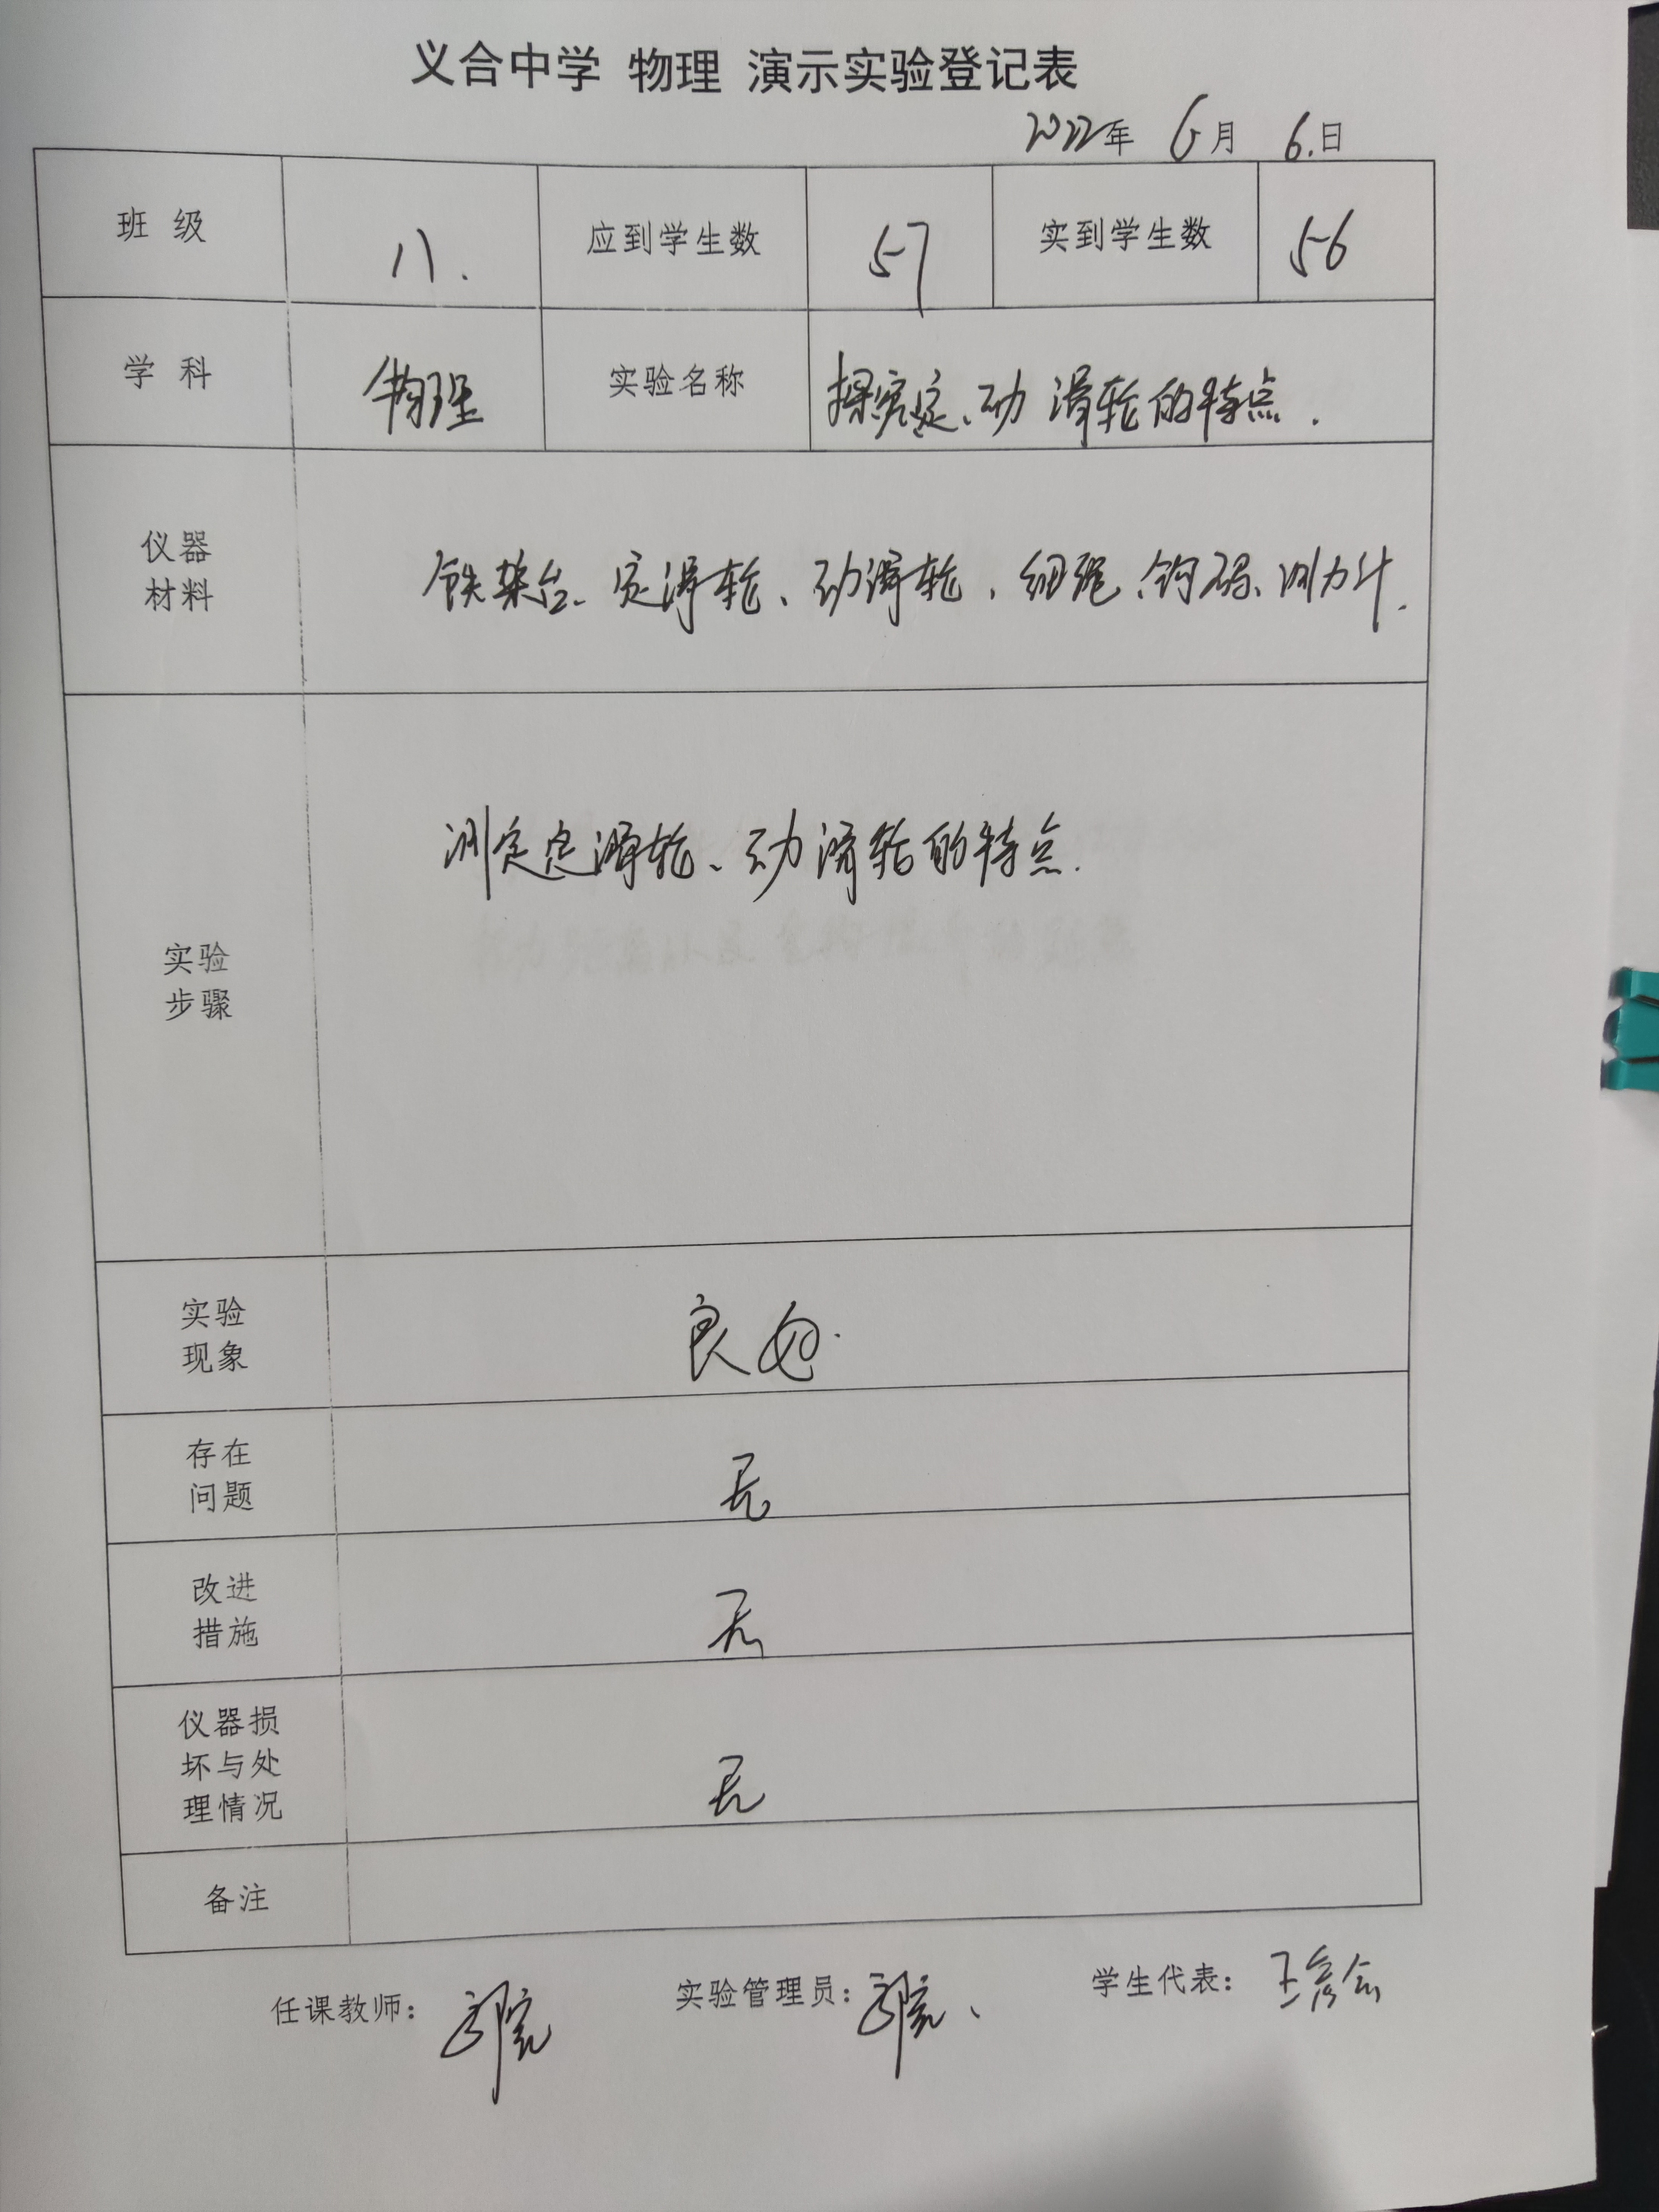 义合中学 物理 演示实验登记表
2022年 6月 6.日
班 级 八. 应到学生数 57 实到学生数 56
学 科 物理 实验名称 探究定、动滑轮的特点.
仪器
材料
铁架台、定滑轮、动滑轮、细绳、钩码、测力计.
测定定滑轮、动滑轮的特点.
实验
步骤
实验
现象
良好.
存在
问题
无
改进
措施
无
仪器损
坏与处
理情况
无
备注
任课教师: 实验管理员: 学生代表: 王